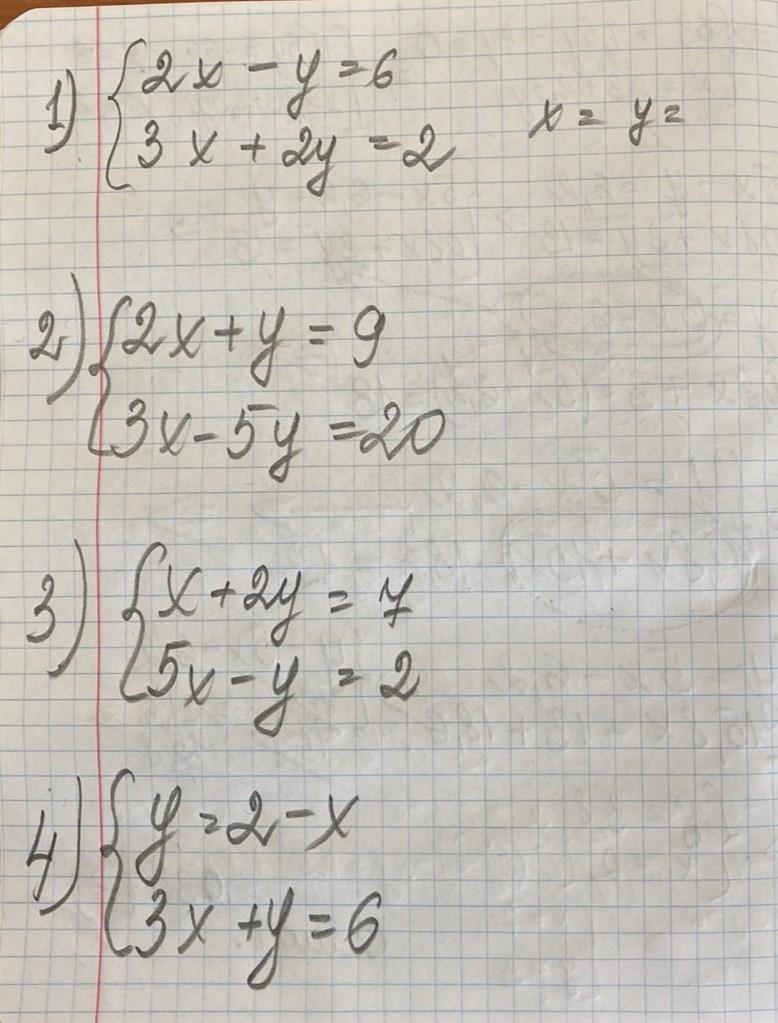 1) { 2x - y = 6
3x + 2y = 2 x = y =
2) { 2x + y = 9
3x - 5y = 20
3) { x + 2y = 7
5x - y = 2
4) { y = 2 - x
3x + y = 6